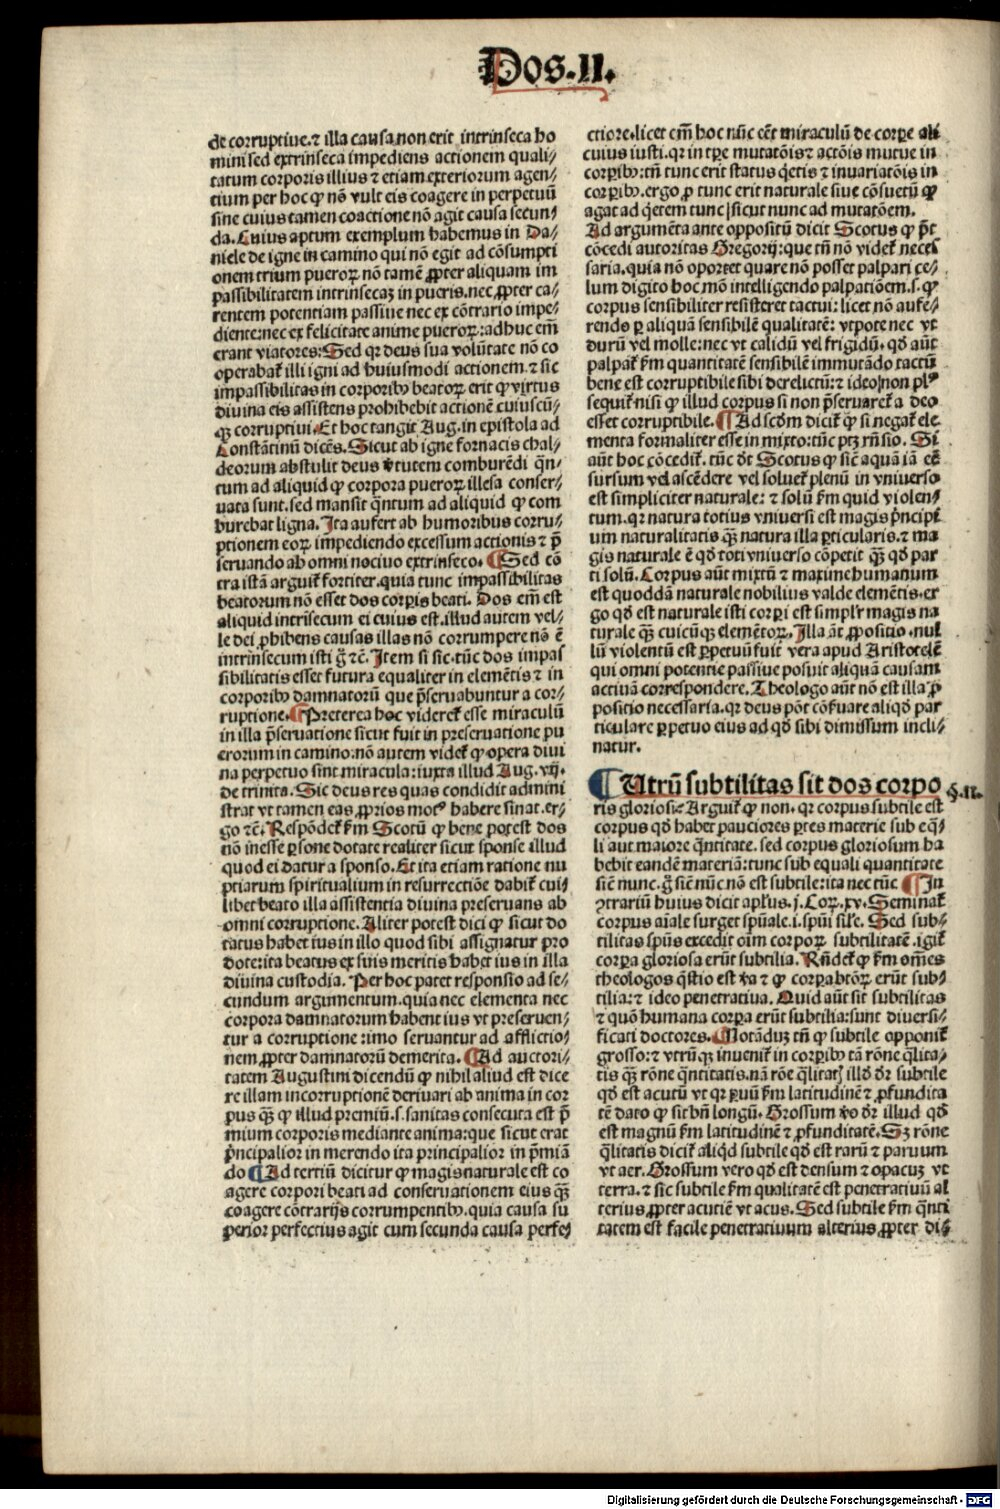 Dos.II.
de corruptiue.⁊ illa causa non erit intrinseca ho
mini sed extrinseca impediens actionem quali⸗
tatum corporis illius ⁊ etiam exteriorum agen⸗
tium per hoc ꝙ nō vult eis coagere in perpetuū
sine cuius tamen coactione nō agit causa secun⸗
da. Cuius aptum exemplum habemus in Da⸗
niele de igne in camino qui nō egit ad cōsumpti
onem trium pueroꝝ nō tamē ꝓpter aliquam im
passibilitatem intrinsecaꝫ in pueris.nec ꝓpter ca⸗
rentem potentiam passiue nec ex cōtrario impe⸗
diente:nec ex felicitate anime pueroꝝ:adhuc em̄
erant viatores: Sed qr deus sua volūtate nō co
operabat̄ illi igni ad huiusmodi actionem.⁊ sic
impassibilitas in corporibꝰ beatoꝝ erit ꝙ virtus
diuina eis assistens prohibebit actionē cuiuscū⸗
qꝫ corruptiui. Et hoc tangit Aug. in epistola ad
Constātinū dicēs. Sicut ab igne fornacis chal⸗
deorum abstulit deus v̓tutem comburēdi q̄n⸗
tum ad aliquid ꝙ corpora pueroꝝ illesa conser⸗
uata sunt.sed mansit q̄ntum ad aliquid ꝙ com
burebat ligna. Ita aufert ab humoribus corru⸗
ptionem eoꝝ impediendo excessum actionis ⁊ p̄
seruando ab omni nociuo extrinseco. ¶ Sed cō
tra istā arguit̄ fortiter.quia tunc impassibilitas
beatorum nō esset dos corpis beati. Dos em̄ est
aliquid intrinsecum ei cuius est.illud autem vel⸗
le dei ꝓhibens causas illas nō corrumpere nō ē
intrinsecum isti g̊ ⁊c̄. Item si sic.tūc dos impas
sibilitatis esset futura equaliter in elemētis ⁊ in
corporibꝰ damnatorū que p̄seruabuntur a cor⸗
ruptione. ¶ Preterea hoc videret̄ esse miraculū
in illa p̄seruatione sicut fuit in preseruatione pu
erorum in camino:nō autem videt̄ ꝙ opera diui
na perpetuo sint miracula:iuxta illud Aug. vij.
de trinita. Sic deus res quas condidit admini
strat vt tamen eas ꝓprios motꝰ habere sinat.er⸗
go ⁊c̄. Respōdet̄ f̄m Scotū ꝙ bene potest dos
nō inesse ꝑsone dotate realiter sicut sponse illud
quod ei datur a sponso. Et ita etiam ratione nu
ptiarum spiritualium in resurrectiōe dabit̄ cui⸗
libet beato illa assistentia diuina preseruans ab
omni corruptione. Aliter potest dici ꝙ sicut do
tatus habet ius in illo quod sibi assignatur pro
dote:ita beatus ex suis meritis habet ius in illa
diuina custodia. Per hoc patet responsio ad se⸗
cundum argumentum.quia nec elementa nec
corpora damnatorum habent ius vt preseruen⸗
tur a corruptione:imo seruantur ad afflictio⸗
nem ꝓpter damnatorū demerita. ¶ Ad auctori⸗
tatem Augustini dicendū ꝙ nihil aliud est dice
re illam incorruptionē deriuari ab anima in cor
pus qꝫ̄ ꝙ illud premiū.s.sanitas consecuta est p̄
mium corporis mediante anima:que sicut erat
p̄ncipalior in merendo ita principalior in p̄miā
do ¶ Ad tertiū dicitur ꝙ magis naturale est co
agere corpori beati ad conseruationem eius qꝫ̄
coagere cōtrarijs corrumpentibꝰ.quia causa su
perior perfectius agit cum secunda causa perfe⸗
ctiore.licet em̄ hoc nūc eēt miraculū de corpe ali
cuius iusti.qr in tp̄e mutatōis ⁊ actōis mutue in
corpibꝰ:tn̄ tunc erit status q̓etis ⁊ inuariatōis in
corpibꝰ.ergo ꝓ tunc erit naturale siue cōsuetū ꝙ
agat ad q̓etem tunc sicut nunc ad mutatōem.
Ad argumēta ante oppositū dicit Scotus ꝙ p̄t
cōcedi autoritas Gregorij:que tn̄ nō videt̄ neces
saria.quia nō oportet quare nō posset palpari ce⸗
lum digito hoc mō intelligendo palpatiōem.s.ꝙ
corpus sensibiliter resisteret tactui:licet nō aufe⸗
rendo ꝑ aliquā sensibilē qualitatē:vtpote nec vt
durū vel molle:nec vt calidū vel frigidū.qd̓ aūt
palpat̄ f̄m quantitatē sensibilē immutādo tactū
bene est corruptibile sibi derelictū:⁊ ideo non plꝰ
sequit̄ nisi ꝙ illud corpus si non p̄seruaret̄ a deo
esset corruptibile. ¶ Ad scd̓m dicit̄ ꝙ si negat̄ ele
menta formaliter esse in mixto:tūc ptꝫ rn̄sio. Si
aūt hoc cōcedit̄.tūc d̓t Scotus ꝙ sic̄ aquā iā eē
sursum vel ascēdere vel soluet̄ plenū in vniuerso
est simpliciter naturale:⁊ solū f̄m quid violen⸗
tum.qr natura totius vniuersi est magis p̄ncipi
um naturalitatis qꝫ̄ natura illa particularis.⁊ ma
gis naturale ē qd̓ toti vniuerso cōpetit qꝫ̄ qd̓ par
ti solū. Corpus aūt mixtū ⁊ maxime humanum
est quoddā naturale nobilius valde elemētis.er
go qd̓ est naturale isti corpi est simplr̄ magis na
turale qꝫ̄ cuicūqꝫ elemētoꝝ. Illa āt ꝓpositio.nul
lū violentū est ꝑpetuū fuit vera apud Aristotelē
qui omni potentie passiue posuit aliquā causam
actiuā correspondere. Theologo aūt nō est illa ꝓ
positio necessaria.qr deus pōt cōseruare aliqd̓ par
ticulare ꝑpetuo eius ad qd̓ sibi dimissum incli⸗
natur.
¶ Utrū subtilitas sit dos corpo
ris gloriosi. Arguit̄ ꝙ non.qr corpus subtile est
corpus qd̓ habet pauciores ꝑtes materie sub eq̄⸗
li aut maiore q̄ntitate.sed corpus gloriosum ha
bebit eandē materiā:tunc sub equali quantitate
sic̄ nunc.g̊ sic̄ nūc nō est subtile:ita nec tūc ¶ In
ꝯtrariū huius dicit apl̓us.j.Coꝝ.xv. Seminat̄
corpus aīale surget spūale.i.spūi sil̓e. Sed sub⸗
tilitas spūs excedit oīm corpoꝝ subtilitatē.igit̄
corpa gloriosa erūt subtilia. Rn̄det̄ ꝙ f̄m om̄es
theologos q̄stio est v̓a ⁊ ꝙ corpa btōꝝ erūt sub⸗
tilia:⁊ ideo penetratiua. Quid aūt sit subtilitas
⁊ quō humana corpa erūt subtilia:sunt diuersi⸗
ficati doctores. ¶ Notāduꝫ tn̄ ꝙ subtile opponit̄
grosso:⁊ vtrūqꝫ inuenit̄ in corpibꝰ tā rōne q̄lita⸗
tis qꝫ̄ rōne q̄ntitatis.nā rōe q̄litatꝭ illd̓ dr̄ subtile
qd̓ est acutū vt qr paruū f̄m latitudinē ⁊ ꝓfundita
tē dato ꝙ sit bn̄ longū. Grossum v̓o dr̄ illud qd̓
est magnū f̄m latitudinē ⁊ ꝓfunditatē. Sꝫ rōne
q̄litatis dicit̄ aliqd̓ subtile qd̓ est rarū ⁊ paruum
vt aer. Grossum vero qd̓ est densum ⁊ opacuꝫ vt
terra.⁊ sic subtile f̄m qualitatē est penetratiuū al
terius ꝓpter acutiē vt acus. Sed subtile f̄m q̄nti
tatem est facile penetratiuum alterius ꝓpter di⸗
Digitalisierung gefördert durch die Deutsche Forschungsgemeinschaft - DFG